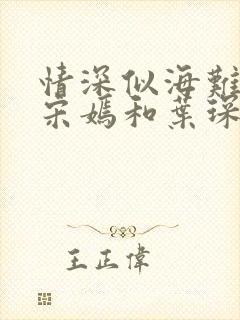 情深似海難
宋媽和葉琛
王正偉